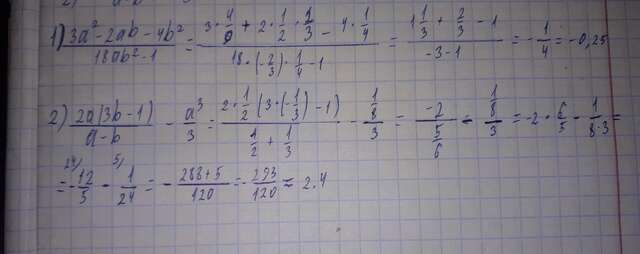 1) (3a² - 2ab - 4b²)/(18ab² - 1) = (3 · 4/9 + 2 · 1/2 · 2/3 - 4 · 1/4)/(18 · (-2/3) · 1/4 - 1) = (1 1/3 + 2/3 - 1)/(-3 - 1) = -1/4 = -0,25
2) 2a(3b - 1)/(a - b) - a³/3 = (2 · 1/2 (3 · (-1/3) - 1))/(1/2 + 1/3) - (1/8)/3 = (-2)/(5/6) - (1/8)/3 = -2 · 6/5 - 1/(8·3) =
= -12/5 - 1/24 = -(288+5)/120 = -293/120 ≈ 2.4